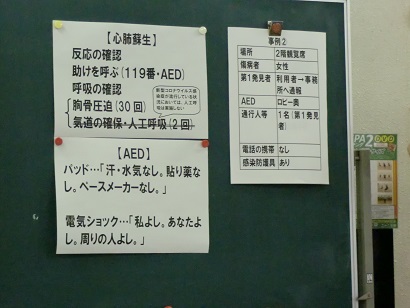 【心肺蘇生】
反応の確認
助けを呼ぶ(119番・AED)
呼吸の確認
胸骨圧迫(30回)
気道の確保・人工呼吸(2回)
新型コロナウイルス感
染症が流行している状
況においては、人工呼
吸は実施しない
【AED】
パッド…「汗・水気なし。貼り薬な
し。ペースメーカーなし。」
電気ショック…「私よし。あなたよ
し。周りの人よし。」
事例2
場所 2階観覧席
傷病者 女性
第1発見者 利用者→事務
所へ通報
AED ロビー奥
通行人等 1名(第1発見
者)
電話の携帯 なし
感染防護具 あり
PA2 DVD